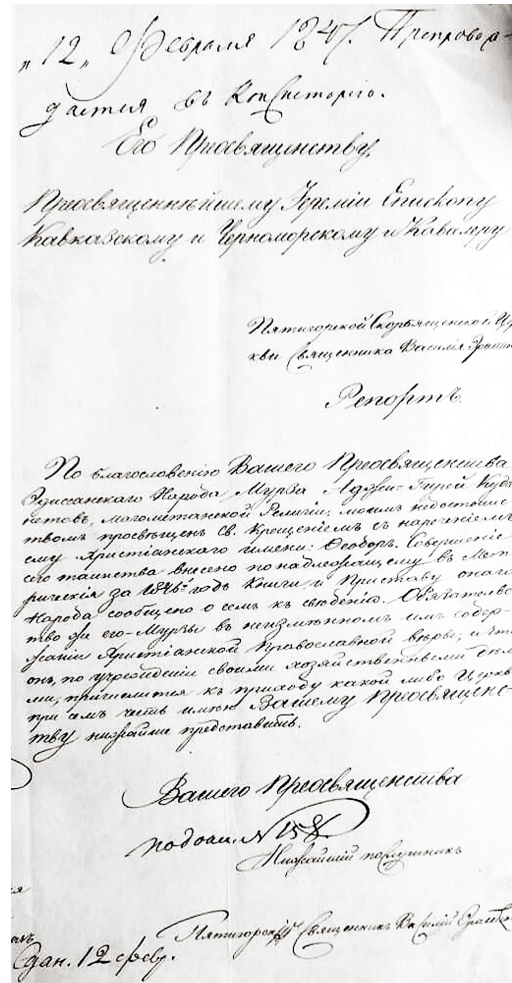 „12„ Февраля 1847. Препровож-
дается въ Консисторію.
Его Преосвященству,
Преосвященнѣйшему Іереміи Епископу
Кавказскому и Черноморскому и Кавалеру
Пятигорской Скорбященской Це
кви Священника Василія
Репортъ.
По благословенію Вашего Преосвященства
Едиссанскаго Народа Мурза Аджи-Гирей
магометанской Религіи, моимъ недостоинс
твомъ просвѣщенъ Св. Крещеніемъ съ нареченіемъ
ему Христіанскаго имени: Ѳеодоръ. Совершеніе
сего таинства внесено по надлежащему въ Мет
рическія за 1846й годъ Книги, и Приставу онаго
Народа сообщено о семъ къ свѣденію. Обязательс
тво же его-Мурзы въ неизмѣнномъ имъ содер-
жаніи Христіанской Православной вѣры, и что
онъ, по учрежденіи своими хозяйственными дѣла
ми, причислится къ приходу какой либо Церкв
при семъ честь имѣю Вашему Преосвященс-
тву нижайше представить.
Вашего Преосвященства
подоан. N 158.
Нижайшій послушникъ
Пятигорскій Священникъ Василій
дан. 12 февр.